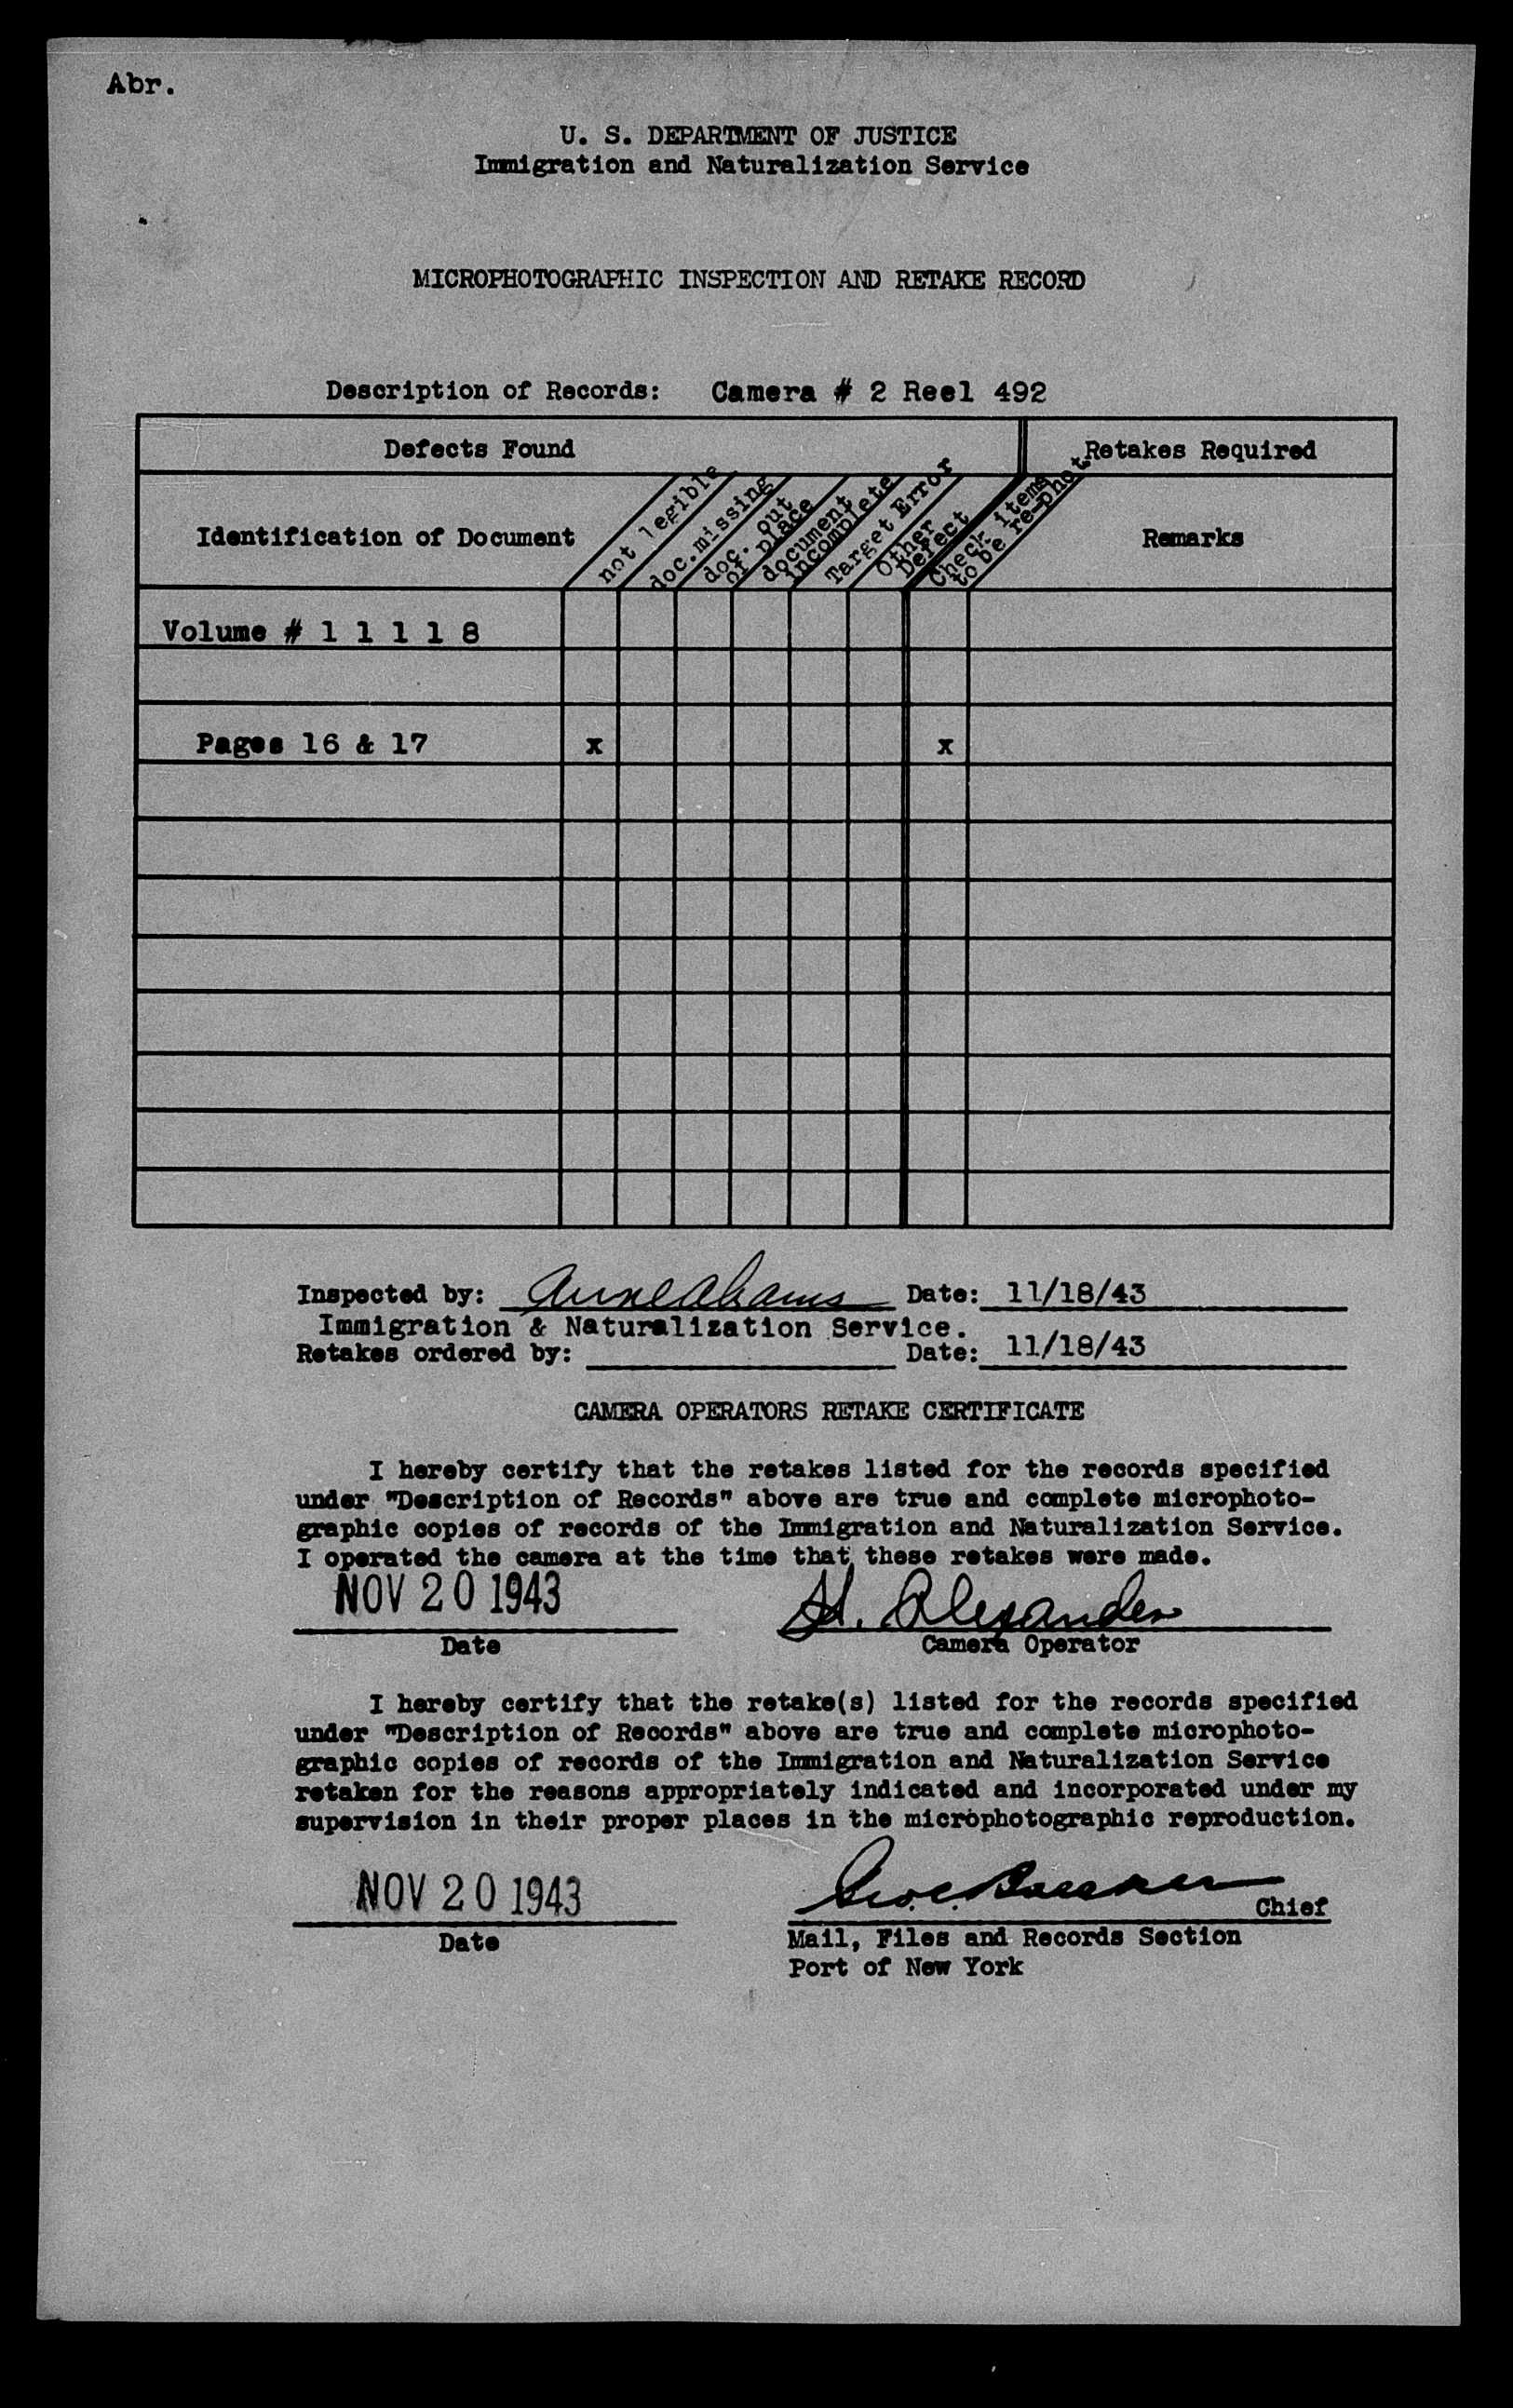 Abr.
U. S. DEPARTMENT OF JUSTICE
Immigration and Naturalization Service
MICROPHOTOGRAPHIC INSPECTION AND RETAKE RECORD
Description of Records: Camera # 2 Reel 492
Defects Found
Retakes Required
Identification of Document
not legible
doc.missing
doc. out
of place
document
incomplete
Target Error
Other
Defect
Check items
to be re-phot.
Remarks
Volume # 1 1 1 1 8
Pages 16 & 17 x x
Inspected by: Date: 11/18/43
Immigration & Naturalization Service.
Retakes ordered by: Date: 11/18/43
CAMERA OPERATORS RETAKE CERTIFICATE
I hereby certify that the retakes listed for the records specified
under "Description of Records" above are true and complete microphoto-
graphic copies of records of the Immigration and Naturalization Service.
I operated the camera at the time that these retakes were made.
NOV 20 1943 H. Alexander
Date Camera Operator
I hereby certify that the retake(s) listed for the records specified
under "Description of Records" above are true and complete microphoto-
graphic copies of records of the Immigration and Naturalization Service
retaken for the reasons appropriately indicated and incorporated under my
supervision in their proper places in the microphotographic reproduction.
NOV 20 1943 Chief
Date Mail, Files and Records Section
Port of New York